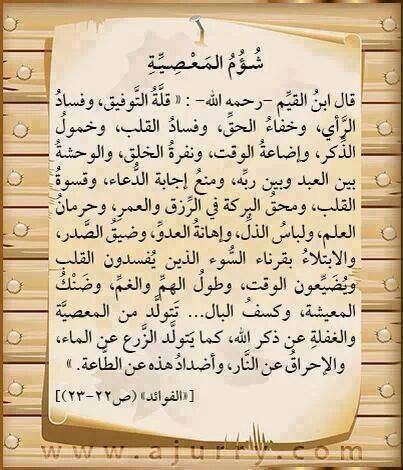 شُؤْمُ المَعْصِيَّةِ
قال ابنُ القيِّم -رحمه الله- : « قلَّةُ التَّوفيق، وفسادُ
الرَّأي، وخفاءُ الحقِّ، وفسادُ القلب، وخمولُ
الذِّكر، وإضاعةُ الوقت، ونفرةُ الخلق، والوحشةُ
بين العبد وبين ربِّه، ومنعُ إجابة الدُّعاء، وقسوةُ
القلب، ومحقُ البركة في الرِّزق والعمر، وحرمانُ
العلم، ولباسُ الذلِّ، وإهانةُ العدوِّ، وضيقُ الصَّدر،
والابتلاءُ بقرناء السُّوء الذين يُفسدون القلب
ويُضَيِّعون الوقت، وطولُ الهمِّ والغمِّ، وضَنْكُ
المعيشة، وكسفُ البال... تَتولَّد من المعصيَّة
والغفلةِ عن ذكر الله، كما يَتولَّد الزَّرع عن الماء،
والإحراقُ عن النَّار، وأضدادُ هذه عن الطَّاعة. »
[«الفوائد» (ص٢٢-٢٣)]
www.ajurry.com